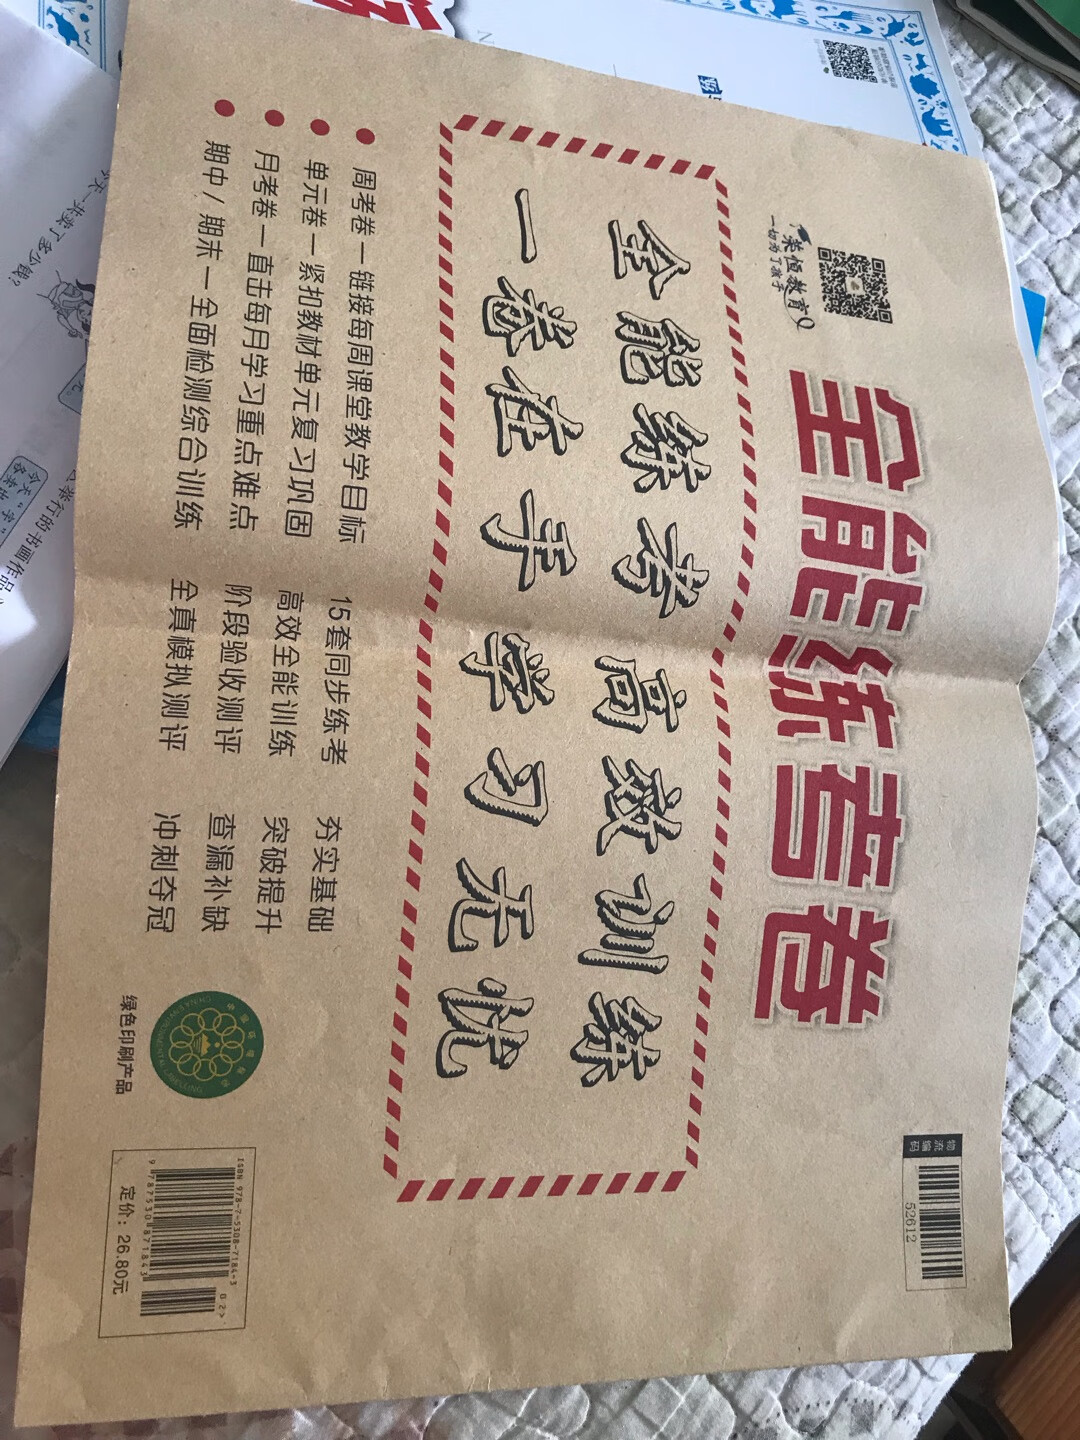 荣恒教育
一切为了孩子
全能练考卷
物流编码
52612
全能练考 高效训练
一卷在手 学习无忧
周考卷－链接每周课堂教学目标 15套同步练考 夯实基础
单元卷－紧扣教材单元复习巩固 高效全能训练 突破提升
月考卷－直击每月学习重点难点 阶段验收测评 查漏补缺
期中/期末－全面检测综合训练 全真模拟测评 冲刺夺冠
绿色印刷产品
ISBN 978-7-5308-7184-3
02>
9 787530 871843
定价：26.80元